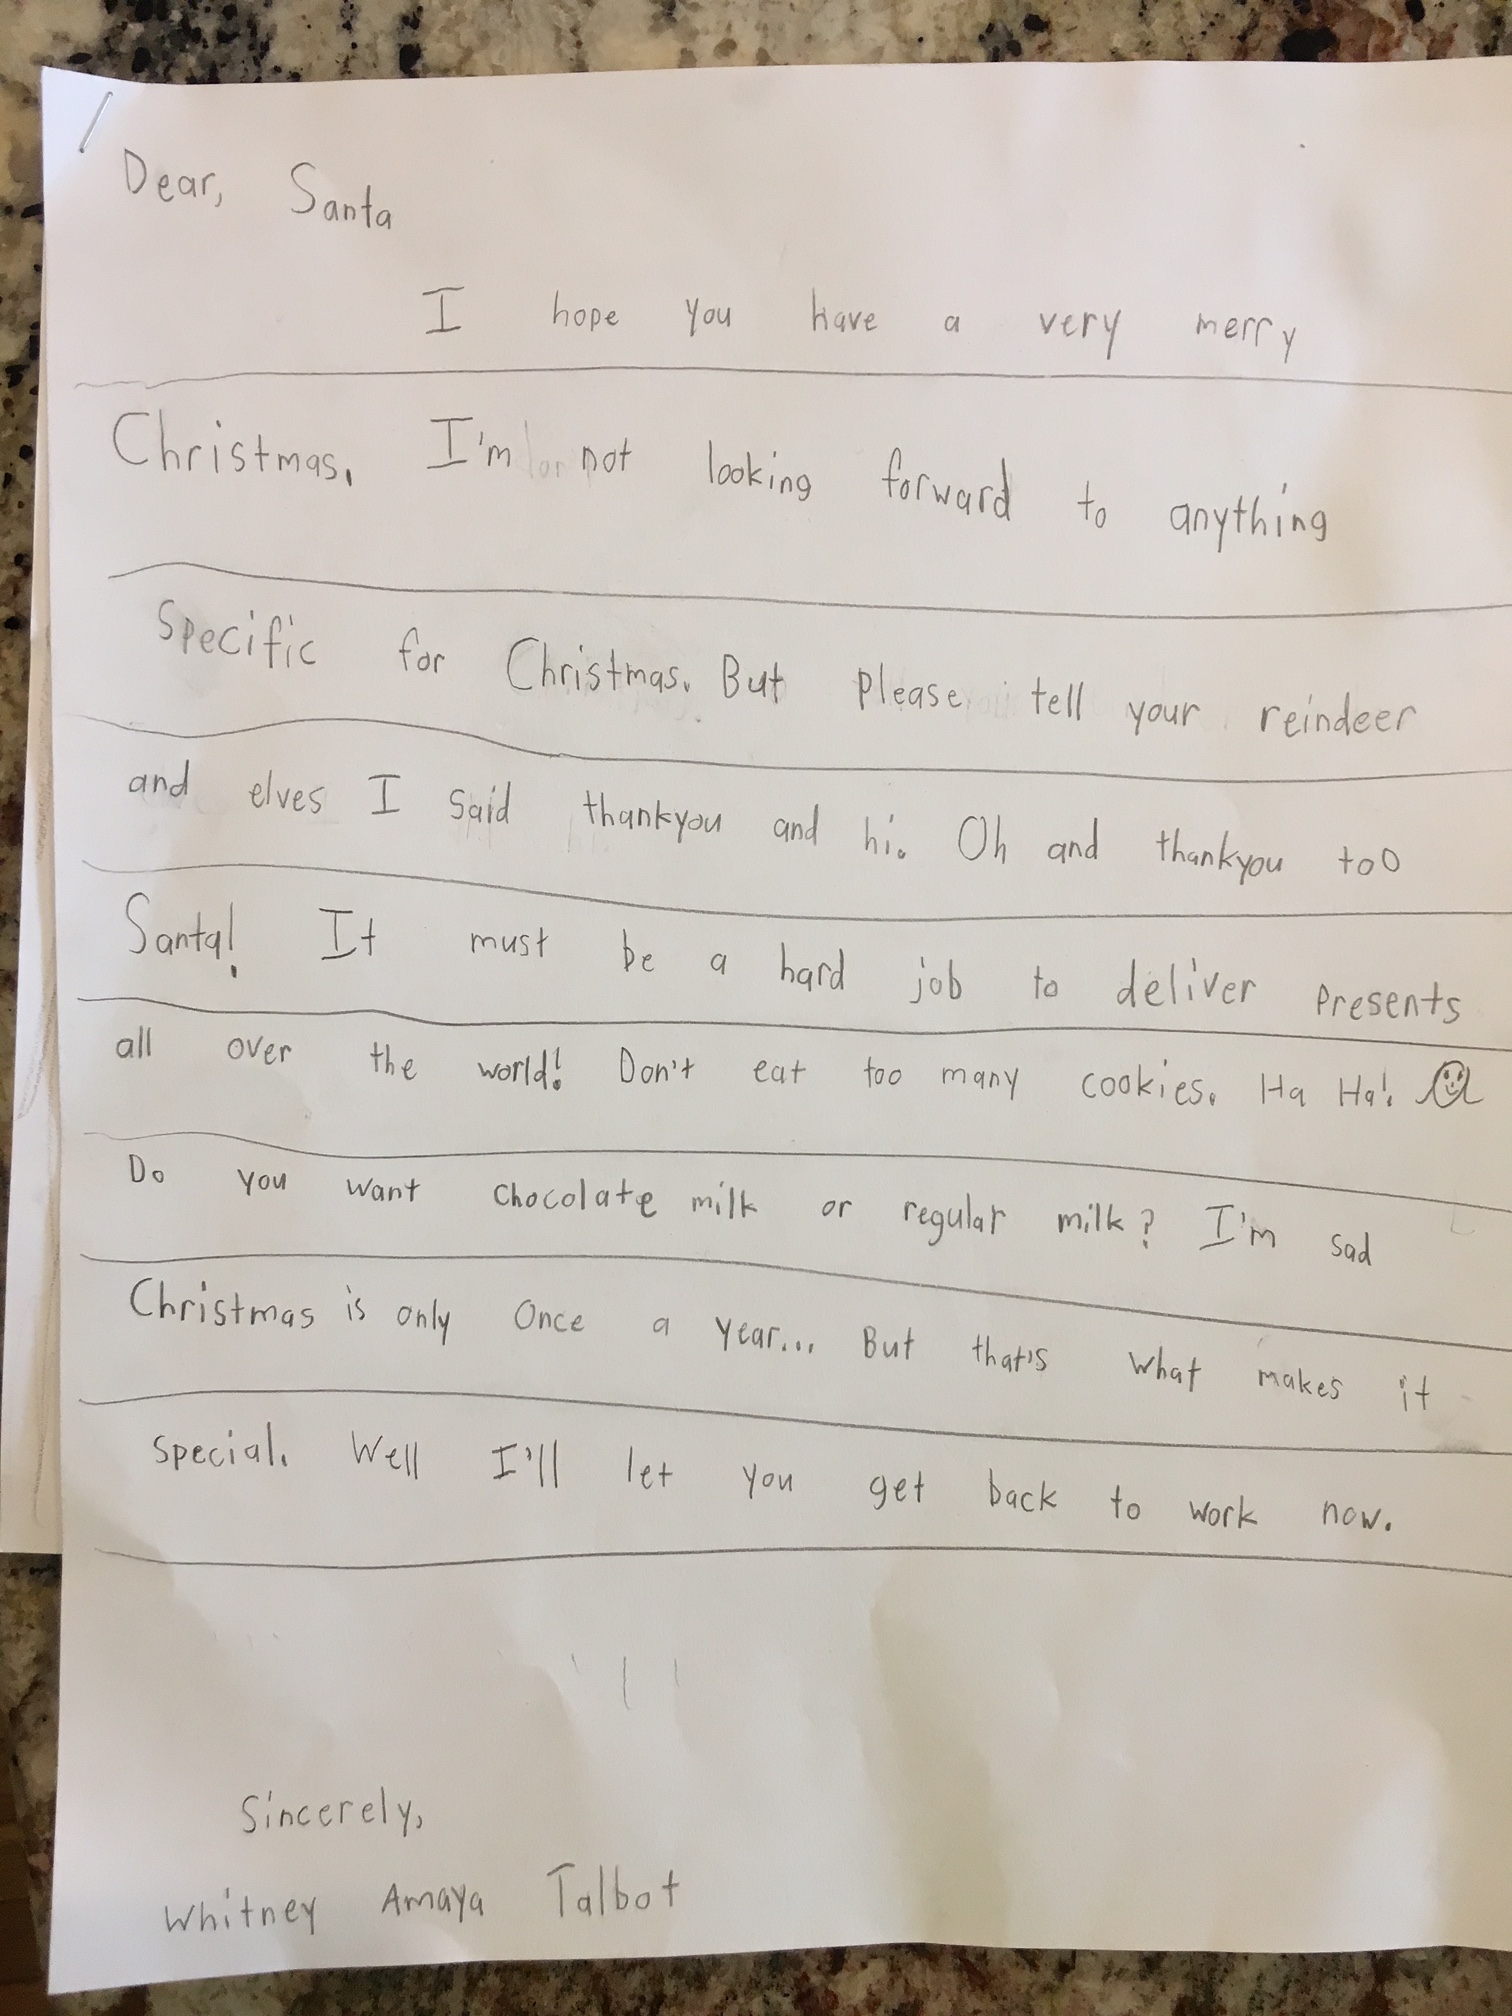 Dear, Santa
I hope you have a very merry
Christmas. I'm not looking forward to anything
Specific for Christmas. But please tell your reindeer
and elves I said thankyou and hi. Oh and thankyou too
Santa! It must be a hard job to deliver presents
all over the world! Don't eat too many cookies. Ha Ha!
Do you want chocolate milk or regular milk? I'm sad
Christmas is only Once a year... But that's what makes it
special. Well I'll let you get back to work now.
Sincerely,
Whitney Amaya Talbot